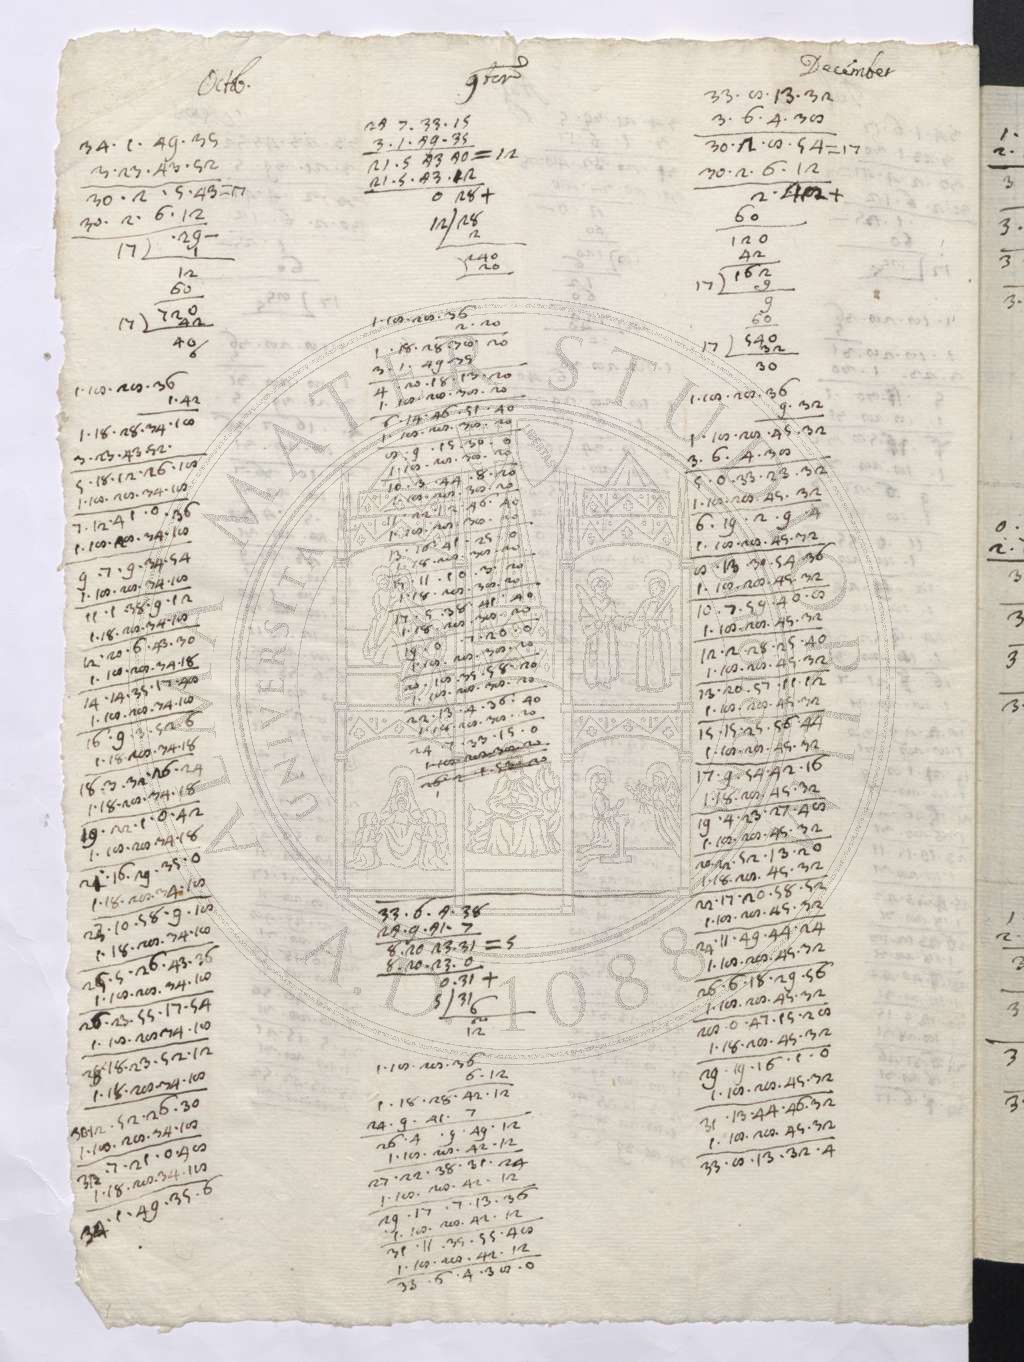 Octb.
34·1·49·35
3·23·43·52
30·2·5·43=17
30·2·6·12
·29—
17) 1
12
60
720
17) 42
40
6
1·18·28·36
1·42
1·18·28·34·18
3·23·43·52·
5·18·12·26·18
1·18·28·34·18
7·12·41·0·36
1·18·28·34·18
9·7·9·34·54
1·18·28·34·18
11·1·38·9·12
1·18·28·34·18
12·20·6·43·30
1·18·28·34·18
14·14·35·17·48
1·18·28·34·18
16·9·3·52·6
1·18·28·34·18
18·3·32·26·24
1·18·28·34·18
19·22·1·0·42
1·18·28·34·18
21·16·29·35·0
1·18·28·34·18
23·10·58·9·18
1·18·28·34·18
25·5·26·43·36
1·18·28·34·18
26·23·55·17·54
1·18·28·34·18
28·18·23·52·12
1·18·28·34·18
30·12·52·26·30
1·18·28·34·18
32·7·21·0·48
1·18·28·34·18
34·1·49·35·6
24·7·33·15
3·1·49·35
21·5·43·40=12
21·5·43·12
0·28+
12) 28
2
240
20
1·18·28·36
2·20
1·18·28·38·20
3·1·49·35
4·20·18·13·20
1·18·28·38·20
6·14·46·51·40
1·18·28·38·20
8·9·15·30·0
1·18·28·38·20
10·3·44·8·20
1·18·28·38·20
11·22·12·46·40
1·18·28·38·20
13·16·41·25·0
1·18·28·38·20
15·11·10·3·20
1·18·28·38·20
17·5·38·41·40
1·18·28·38·20
19·0·7·20·0
1·18·28·38·20
20·18·35·58·20
1·18·28·38·20
22·13·4·36·40
1·18·28·38·20
24·7·33·15·0
1·18·28·38·20
26·2·1·53·20
33·6·4·38
24·9·41·7
8·20·23·31=5
8·20·23·0
0·31+
5) 31
6
12
1·18·28·36
6·12
1·18·28·42·12
24·9·41·7
26·4·9·49·12
1·18·28·42·12
27·22·38·31·24
1·18·28·42·12
29·17·7·13·36
1·18·28·42·12
31·11·35·55·48
1·18·28·42·12
33·6·4·38·0
Decémber
33·8·13·32
3·6·4·38
30·2·8·54=17
30·2·6·12
2·42+
60
120
42
17) 162
9
9
60
17) 540
32
30
1·18·28·36
9·32
1·18·28·45·32
3·6·4·38
5·0·33·23·32
1·18·28·45·32
6·19·2·9·4
1·18·28·45·32
8·13·30·54·36
1·18·28·45·32
10·7·59·40·8
1·18·28·45·32
12·2·28·25·40
1·18·28·45·32
13·20·57·11·12
1·18·28·45·32
15·15·25·56·44
1·18·28·45·32
17·9·54·42·16
1·18·28·45·32
19·4·23·27·48
1·18·28·45·32
20·22·52·13·20
1·18·28·45·32
22·17·20·58·52
1·18·28·45·32
24·11·49·44·24
1·18·28·45·32
26·6·18·29·56
1·18·28·45·32
28·0·47·15·28
1·18·28·45·32
29·19·16·1·0
1·18·28·45·32
31·13·44·46·32
1·18·28·45·32
33·8·13·32·4
ALMA MATER STUDIORUM
UNIVERSITAS
A.D. 1088